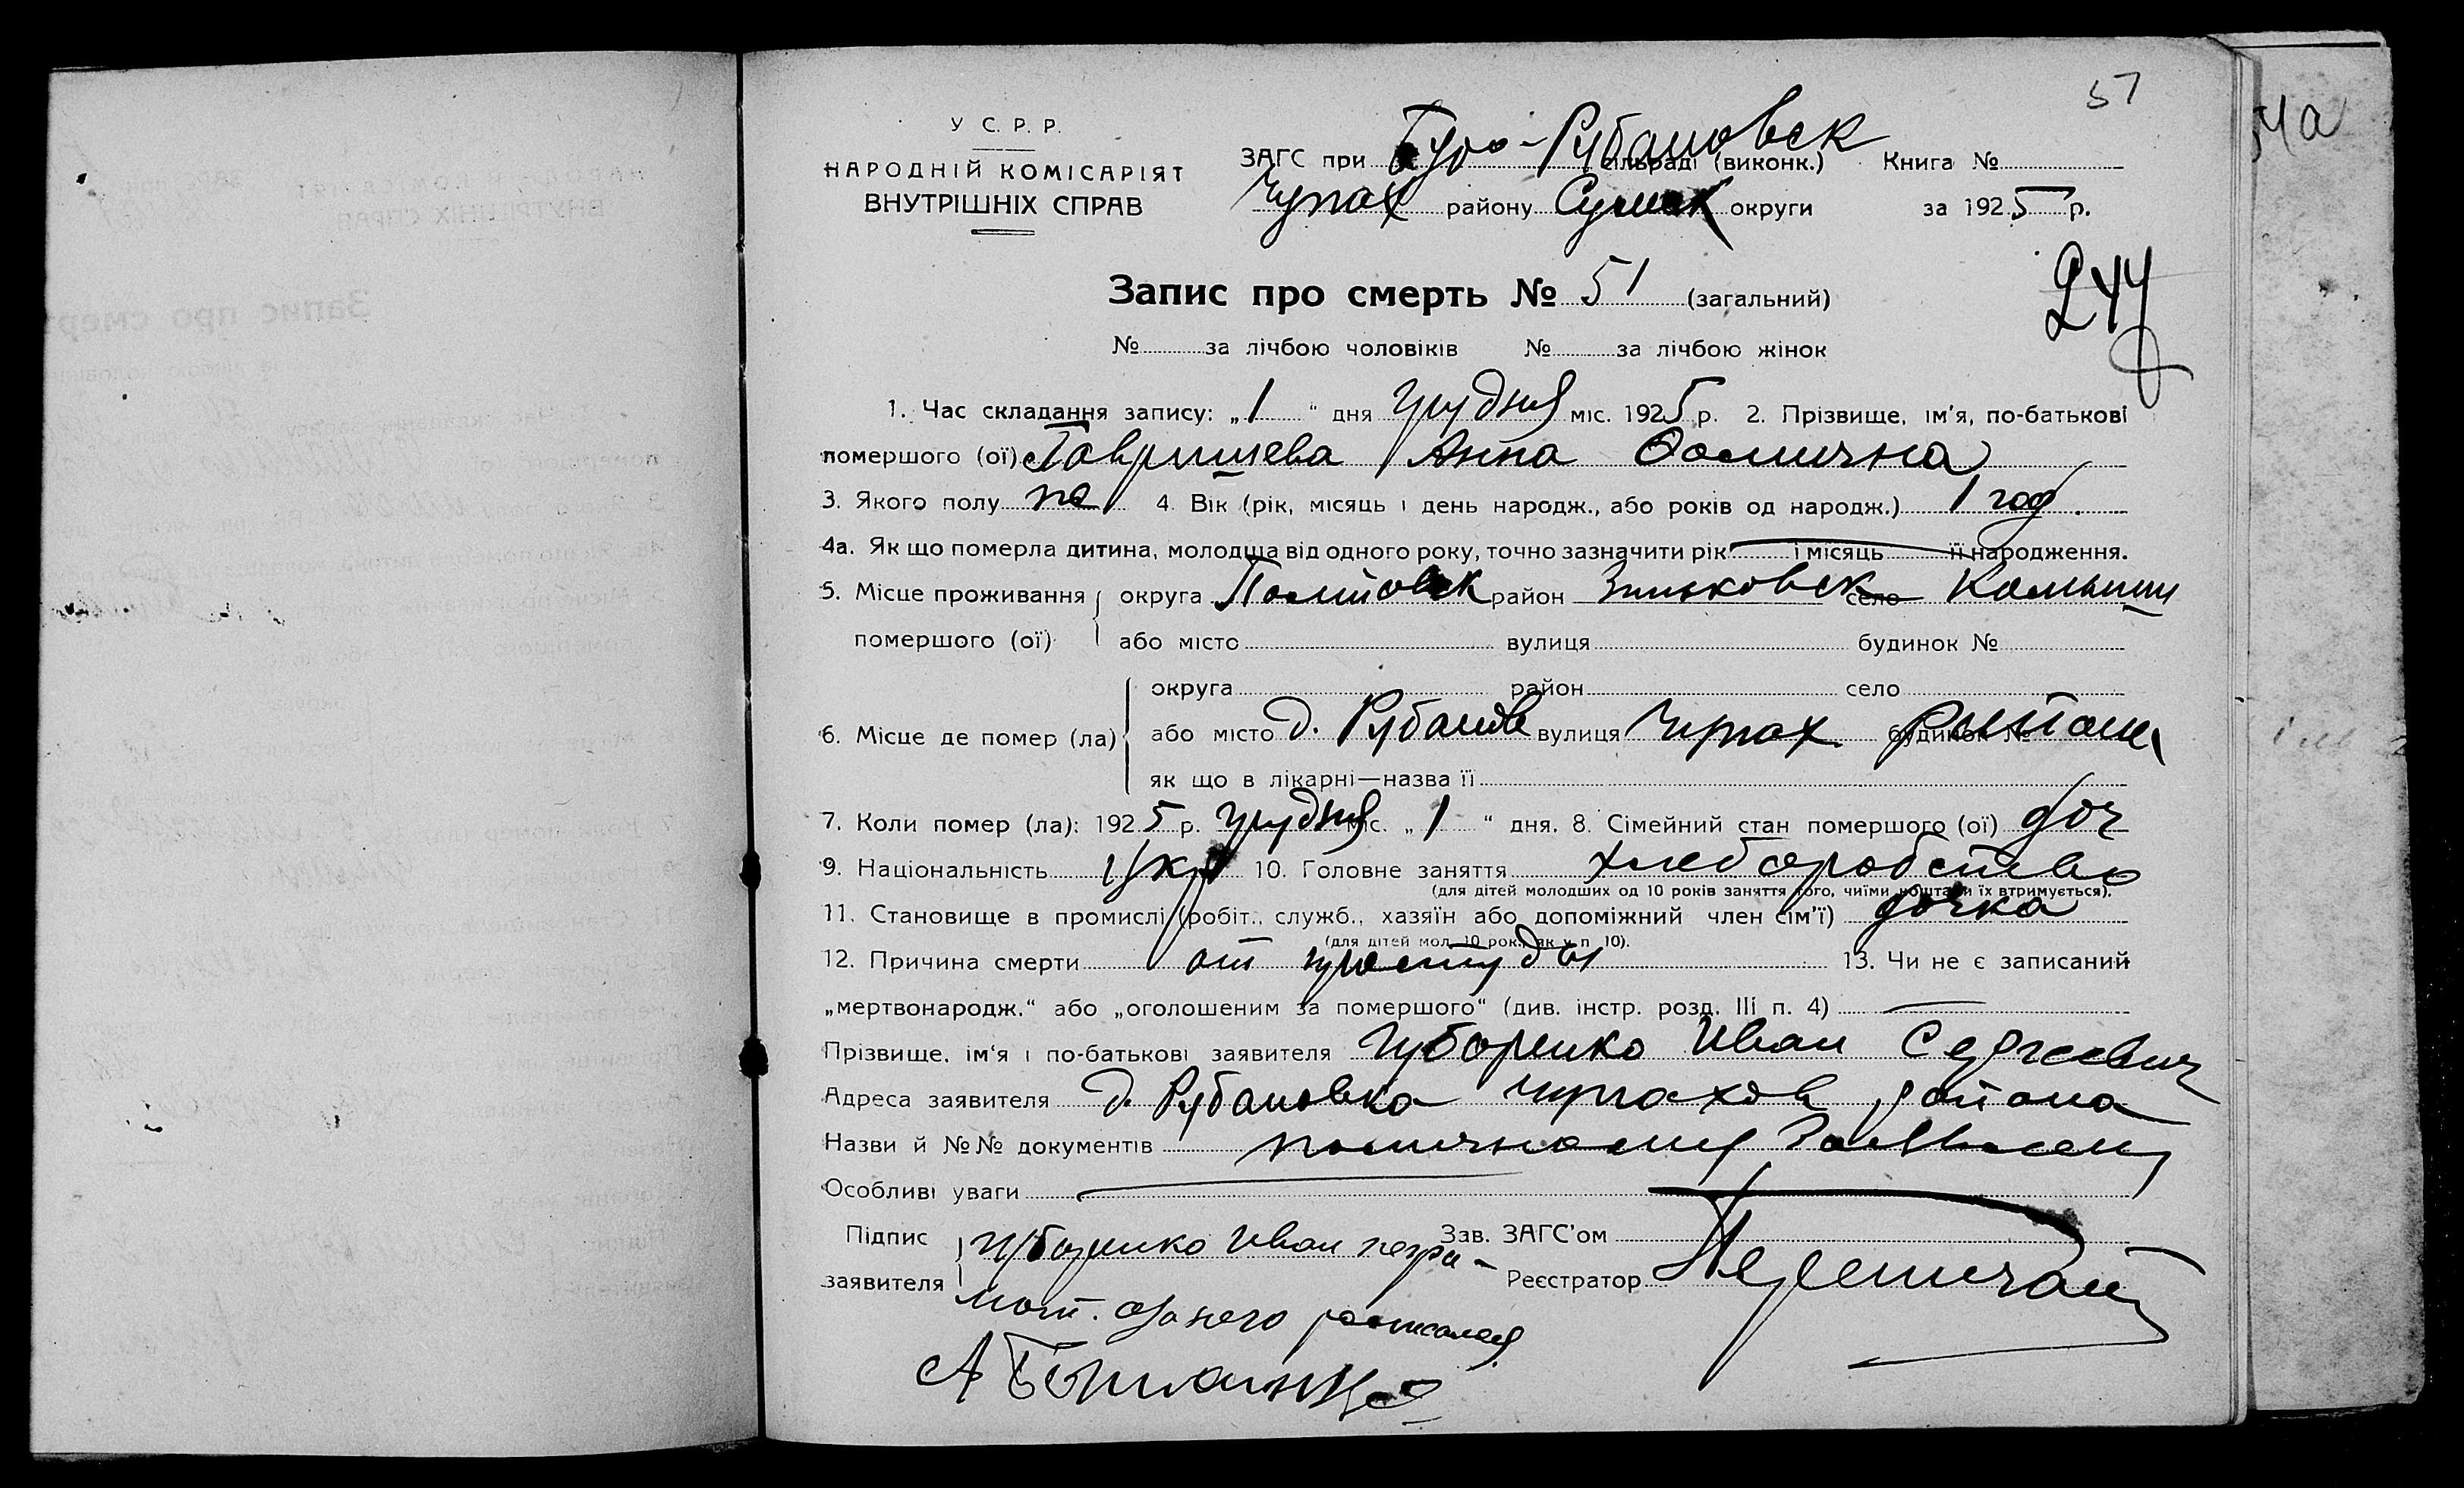 57
4а
У С. Р. Р.
НАРОДНІЙ КОМІСАРІЯТ
ВНУТРІШНІХ СПРАВ
ЗАГС при Буро-Рубановск сільраді (виконк.) Книга №
Чупах району Сумск округи за 1925 р.
244
Запис про смерть № 51 (загальний)
№ за лічбою чоловіків № за лічбою жінок
1. Час складання запису: „1“ дня грудня міс. 1925 р. 2. Прізвище, ім'я, по-батькові
помершого (ої) Гавришева Анна
3. Якого полу же 4. Вік (рік, місяць і день народж., або років од народж.) 1 год.
4а. Як що померла дитина, молодша від одного року, точно зазначити рік і місяць її народження.
5. Місце проживання округа Полтовск район Зиньковск село Комыши
помершого (ої) або місто вулиця будинок №
округа район село
6. Місце де помер (ла) або місто д. Рубановк вулиця Чупах будинок № района
як що в лікарні—назва її
7. Коли помер (ла): 1925 р. грудня міс. „1“ дня. 8. Сімейний стан помершого (ої) доч
9. Національність Укр 10. Головне заняття хлеборобство
(для дітей молодших од 10 років заняття того, чиїми коштами їх втримується).
11. Становище в промислі (робіт., служб., хазяїн або допоміжний член сім'ї) дочка
(для дітей мол. 10 рок., як у п 10).
12. Причина смерти от простуды 13. Чи не є записаний
„мертвонародж.“ або „оголошеним за помершого“ (див. інстр. розд. III п. 4)
Прізвище, ім'я і по-батькові заявителя Губаренко Иван Сергеевич
Адреса заявителя д. Рубановка Чупахов района
Назви й №№ документів
Особливі уваги
Підпис Губаренко Иван негра- Зав. ЗАГС'ом
заявителя Реєстратор
мот. за него росписался